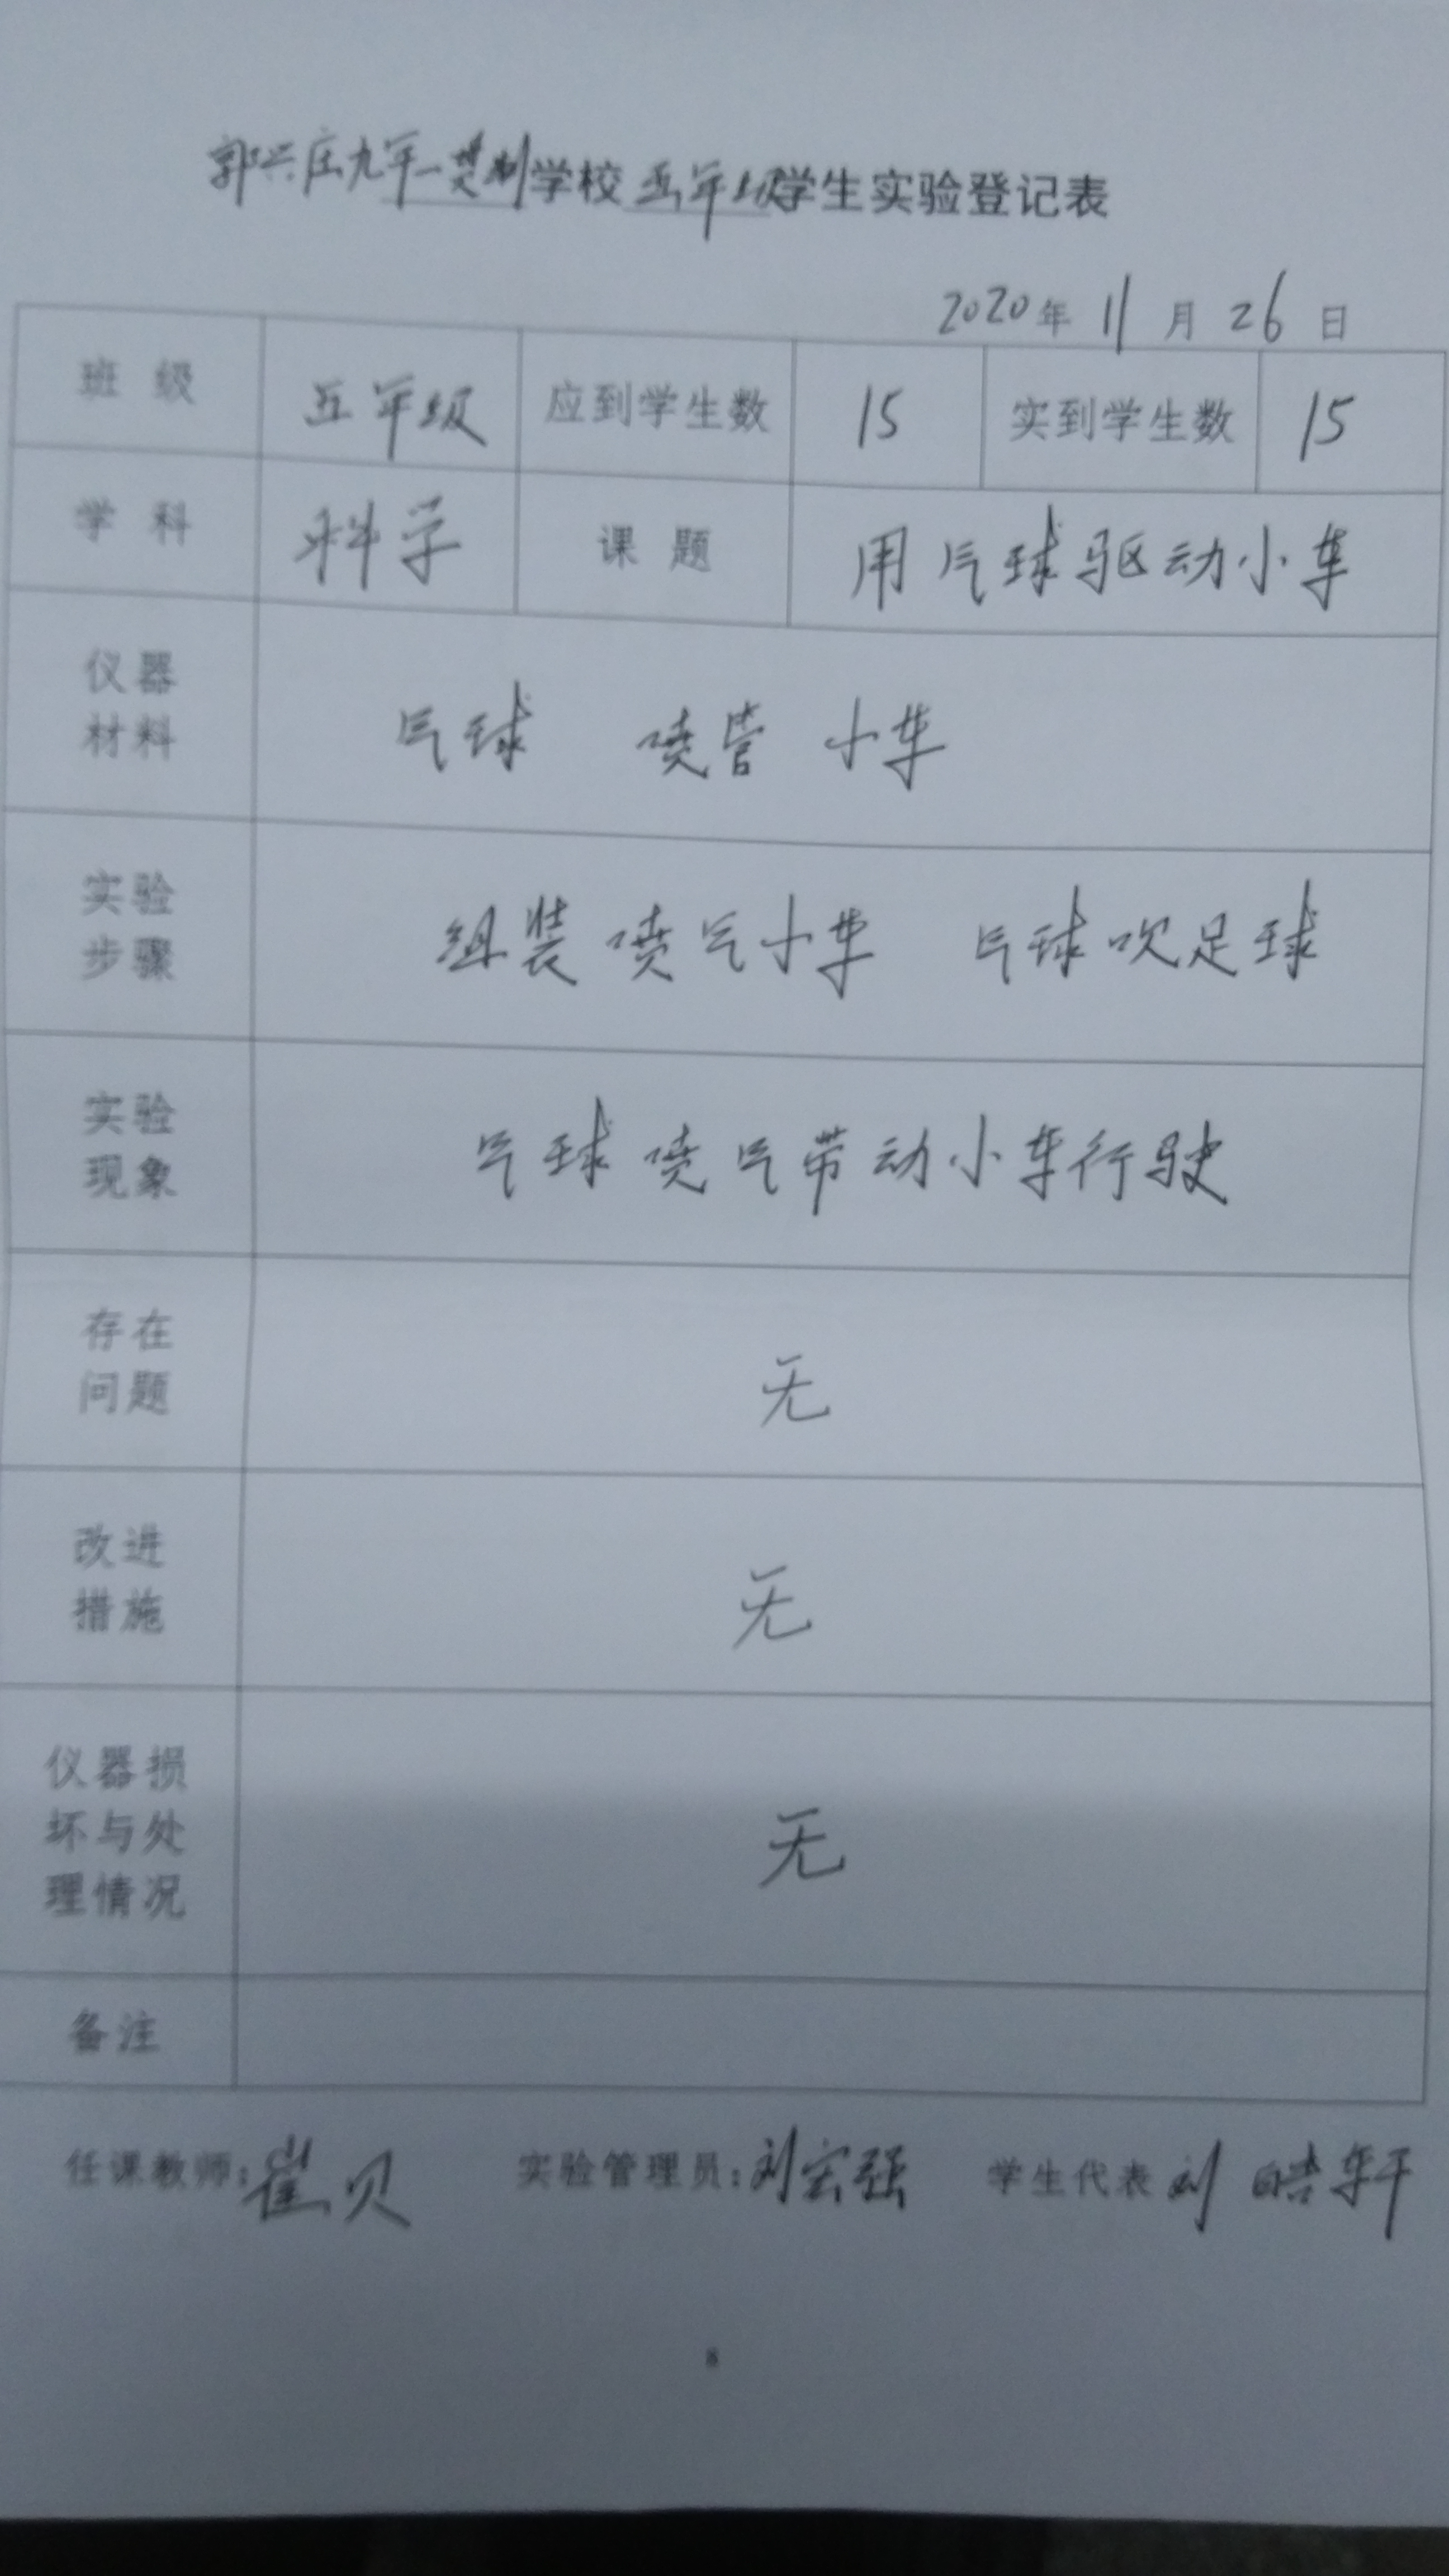 郭兴庄九年一贯制学校五年级学生实验登记表
2020年 11 月 26 日
班 级 五年级 应到学生数 15 实到学生数 15
学 科 科学 课 题 用气球驱动小车
仪器
材料
气球 喷管 小车
实验
步骤
组装喷气小车 气球吹足球
实验
现象
气球喷气带动小车行驶
存在
问题
无
改进
措施
无
仪器损
坏与处
理情况
无
备注
任课教师:崔贝 实验管理员:刘宏强 学生代表 刘皓轩
8